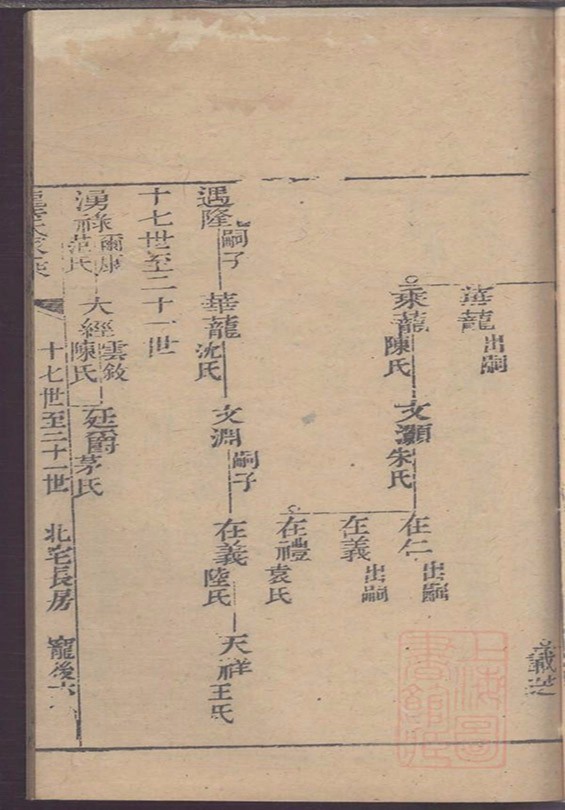 華蘢 出嗣
乘蘢 陳氏
文灝 朱氏
在仁 出嗣
在義 出嗣
在禮 袁氏
遇隆 嗣子
華蘢 沈氏
文淵 嗣子
在義 陸氏
天祥 王氏
十七世至二十一世
湧祿 爾康 范氏
大經 雲敘 陳氏
廷爵 茅氏
十七世至二十一世 北宅長房 寵後